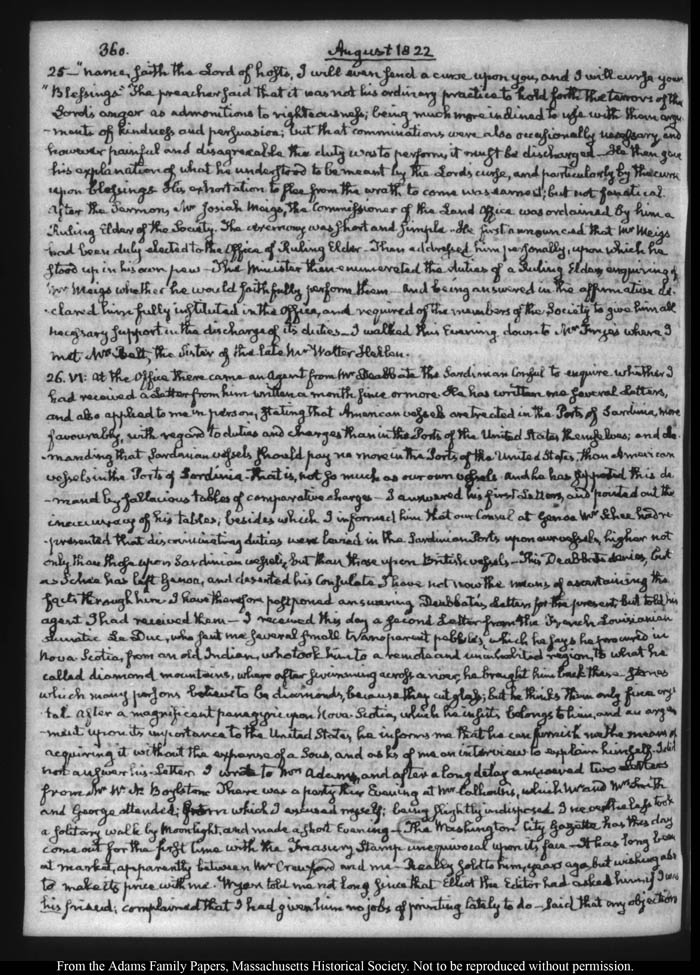 360.
August 1822
25 — "name, saith the Lord of hosts, I will even send a curse upon you, and I will curse your
"Blessings." The preacher said that it was not his ordinary practice to hold forth the terrors of the
Lord's anger as admonitions to righteousness; being much more inclined to use with them argu
-ments of kindness and persuasion; but that comminations were also occasionally necessary, and
however painful and disagreeable the duty was to perform, it must be discharged — He then gave
his explanation of what he understood to be meant by the Lord's curse, and particularly by the curse
upon blessings. His exhortation to flee from the wrath to come was earnest; but not fanatical.
After the Sermon, Mr Josiah Meigs, the Commissioner of the Land Office was ordained by him a
Ruling Elder of the Society. The ceremony was short and simple — He first announced that Mr Meigs
had been duly elected to the Office of Ruling Elder — Then addressed him personally, upon which he
stood up in his own pew — The Minister then enumerated the duties of a Ruling Elder, enquiring of
Mr Meigs whether he would faithfully perform them — And being answered in the affirmative de
-clared him fully instituted in the Office, and required of the members of the Society to give him all
necessary support in the discharge of its duties — I walked this Evening down to Mr Frye's where I
met Mrs Belt, the Sister of the late Mr Walter Hellen.
26. VI: At the Office there came an Agent from Mr Deabbate the Sardinian Consul to enquire whether I
had received a Letter from him written a month since or more. He has written me several Letters,
and also applied to me in person, stating that American vessels are treated in the Ports of Sardinia, more
favourably, with regard to duties and charges than in the Ports of the United States themselves; and de
-manding that Sardinian vessels should pay no more in the Ports of the United States, than American
vessels in the Ports of Sardinia — that is, not so much as our own vessels — And he has supported this de
-mand by fallacious tables of comparative charges — I answered his first Letters, and pointed out the
inaccuracy of his tables; besides which I informed him that our Consul at Genoa Mr Shee had re
-presented that discriminating duties were levied in the Sardinian Ports upon our vessels, higher not
only than those upon Sardinian vessels, but than those upon British vessels — This Deabbate denies, but
as Shee has left Genoa, and deserted his Consulate, I have not now the means of ascertaining the
facts through him. I have therefore postponed answering Deabbate's Letters for the present but told his
agent I had received them — I received this day a second Letter from the French Louisianian
Lunatic Le Duc, who sent me several small transparent pebbles, which he says he procured in
Nova Scotia, from an old Indian, who took him to a remote and uninhabited region, to what he
called diamond mountains, where after swimming across a river, he brought him back these stones
which many persons believe to be diamonds, because they cut glass; but he thinks them only fine crys
-tal. After a magnificent panegyric upon Nova Scotia, which he insists belongs to him, and an argu
-ment upon its importance to the United States, he informs me that he can furnish me the means of
acquiring it without the expense of a Sous, and asks of me an interview to explain himself. I did
not answer his Letter. I wrote to Mrs Adams, and after a long delay answered two Letters
from Mr W. N. Boylston. There was a party this Evening at Mr Calhoun's, which Mr and Mrs Smith
and George attended; from which I excused myself; being slightly indisposed. I nevertheless took
a solitary walk by Moonlight, and made a short Evening — The Washington City Gazette has this day
come out for the first time with the Treasury Stamp unequivocal upon its face — It has long been
at market, apparently between Mr Crawford and me — Really sold to him, years ago but wishing also
to make its price with me. Wyer told me not long since that Elliot the Editor had asked him if I was
his friend; complained that I had given him no jobs of printing lately to do — said that any objection
From the Adams Family Papers, Massachusetts Historical Society. Not to be reproduced without permission.